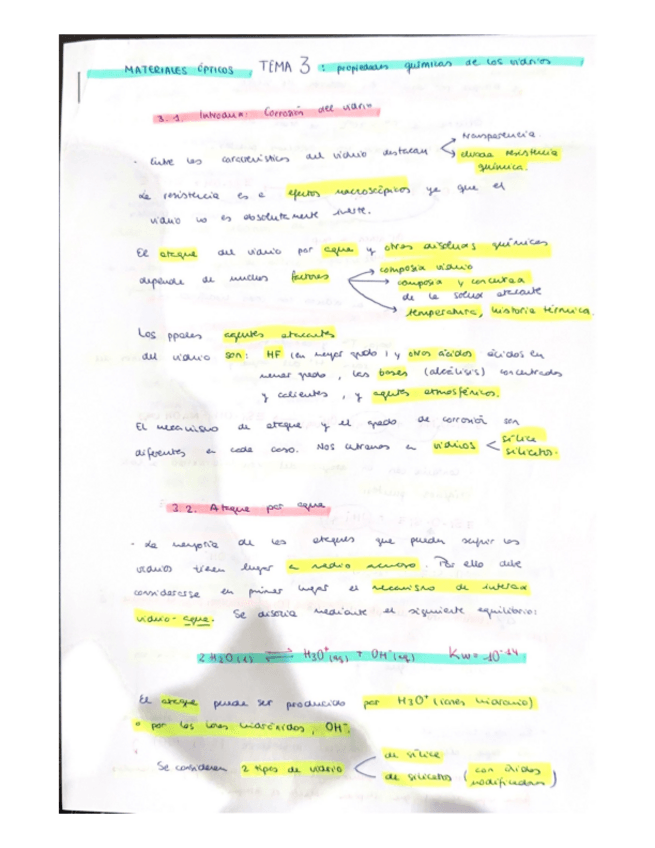 MATERIALES ÓPTICOS TEMA 3: propiedades químicas de los vidrios
3.1. Introducn: Corrosión del vidrio
· Entre las características del vidrio destacan transparencia.
elevada resistencia química.
La resistencia es a efectos macroscópicos ya que el
vidrio no es absolutamente inerte.
El ataque del vidrio por agua y otras disolucs químicas
depende de muchos factores
composicn vidrio
composicn y concentracn
de la solucn atacante
temperatura, historia térmica.
Los ppales agentes atacantes
del vidrio son: HF (en mayor grado) y otros ácidos ácidos en
menor grado, las bases (alcálisis) concentrados
y calientes, y agentes atmosféricos.
El mecanismo de ataque y el grado de corrosión son
diferentes en cada caso. Nos centramos en vidrios sílice
silicatos.
3.2. Ataque por agua
· La mayoría de los ataques que pueden sufrir los
vidrios tienen lugar en medio acuoso. Por ello debe
considerarse en primer lugar el mecanismo de interaccn
vidrio-agua. Se disocia mediante el siguiente equilibrio:
2 H2O (l) ⇌ H3O+ (aq) + OH- (aq) Kw = 10^-14
El ataque puede ser producido por H3O+ (iones hidronio)
o por los iones hidróxidos, OH-.
Se consideran 2 tipos de vidrio de sílice
de silicatos (con óxidos modificadores)